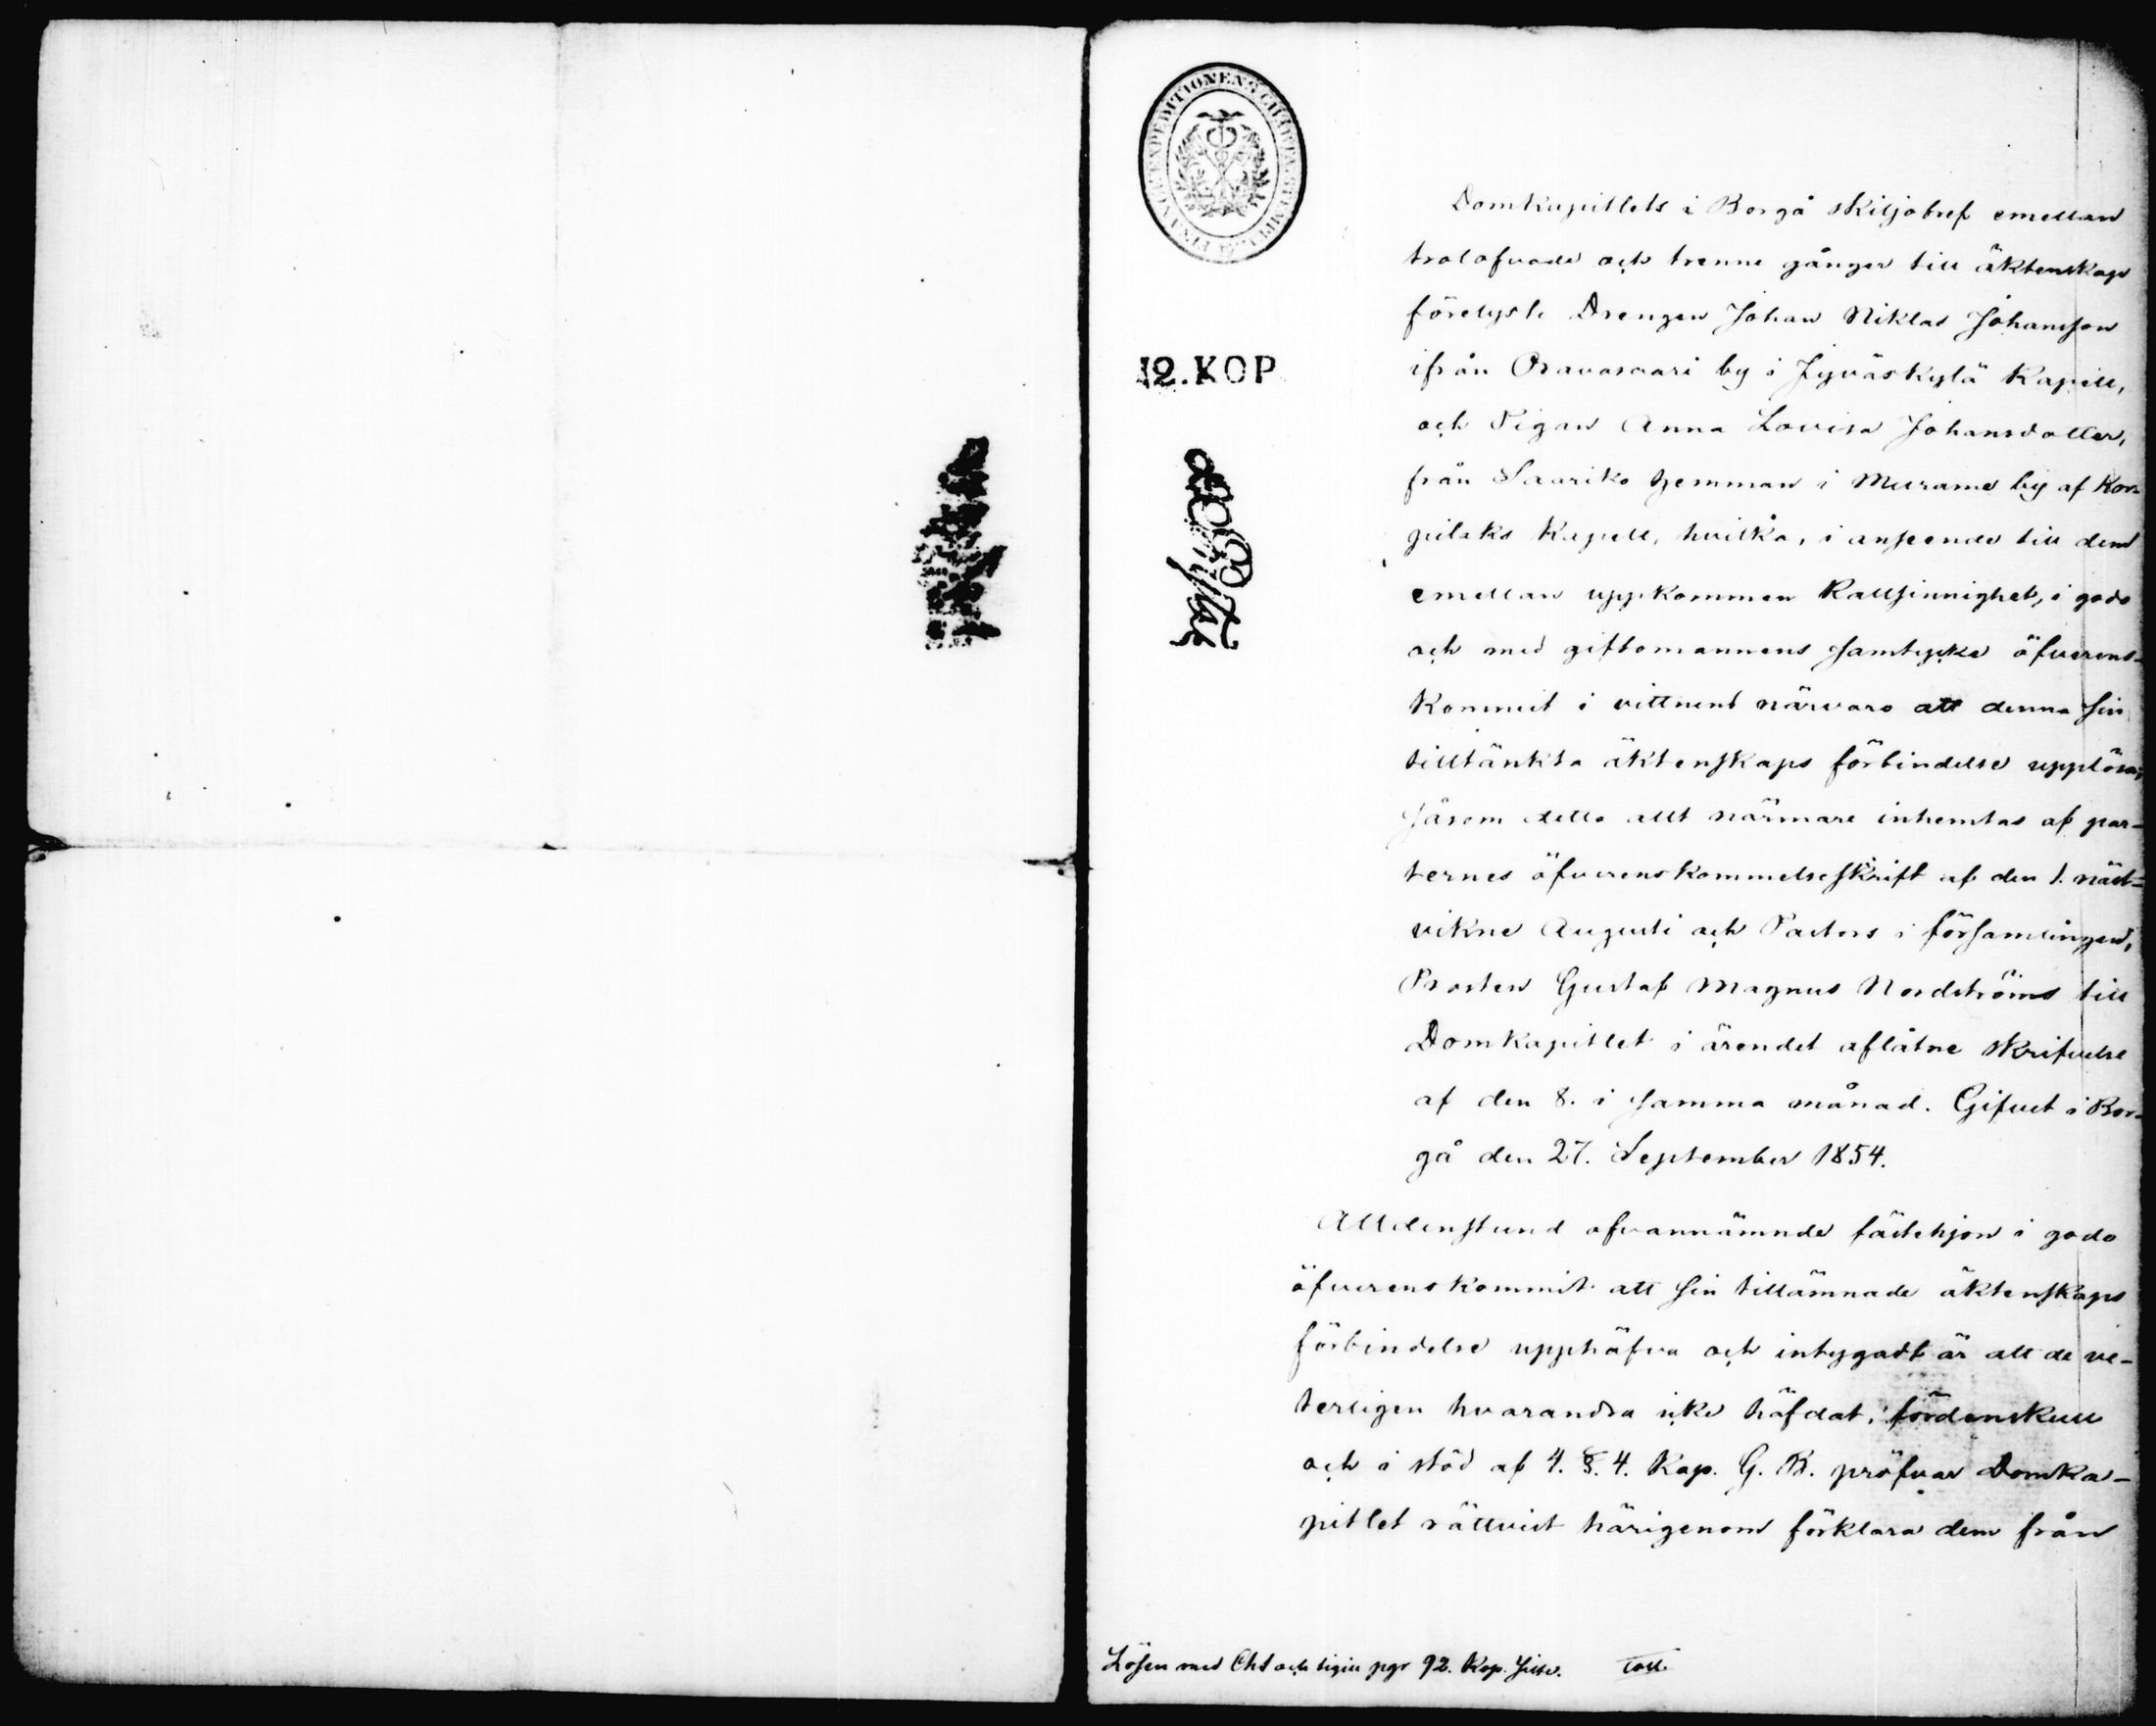 FINANCE EXPEDITIONENS CHARTÆ STEMPEL
12. KOP
Domkapitlets i Borgå skiljobref emellan
trolofvade och trenne gånger till äktenskap
förelyste Drengen Johan Niklas Johansson
ifrån Oravasaari by i Jyväskylä Kapell,
och Pigan Anna Lovisa Johansdotter,
från Saariko hemman i Murame by af Kor-
pilaks Kapell, hvilka, i anseende till dem
emellan uppkommen Kallsinnighet, i godo
och med giftomannens samtycke öfverens-
kommit i vittnens närvaro att denna sin
tilltänkta äktenskaps förbindelse upplösa,
såsom detta allt närmare inhemtas af par-
ternes öfverenskommelseskrift af den 1. näst-
vikne Augusti och Pastors i församlingen,
Prosten Gustaf Magnus Nordströms till
Domkapitlet i ärendet aflåtne skrifvelse
af den 8. i samma månad. Gifvet i Bor-
gå den 27. September 1854.
Alldenstund ofvannämnde fästehjon i godo
öfverenskommit att sin tillämnade äktenskaps
förbindelse upphäfva och intygadt är att de ve-
terligen hvarandra icke häfdat; fördenskull
och i stöd af 4. §. 4. Kap. G. B. pröfvar Domka-
pitlet rättvist härigenom förklara dem från
Lösen med Cht och sigill ppr 92. Kop. Silfv.